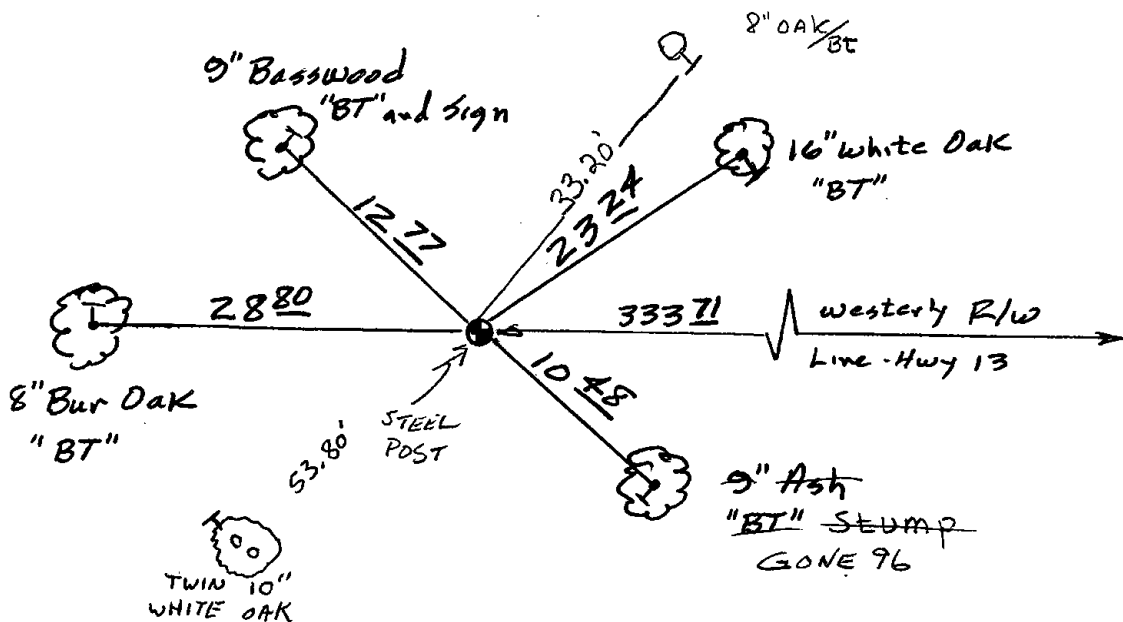 8" OAK/BT
9" Basswood
"BT" and Sign
33.20'
16" white Oak
"BT"
12 77
23 24
28 80
333 71
westerly R/W
Line - Hwy 13
8" Bur Oak
"BT"
STEEL
POST
10 48
53.80'
9" Ash
"BT" Stump
GONE 96
TWIN 10"
WHITE OAK